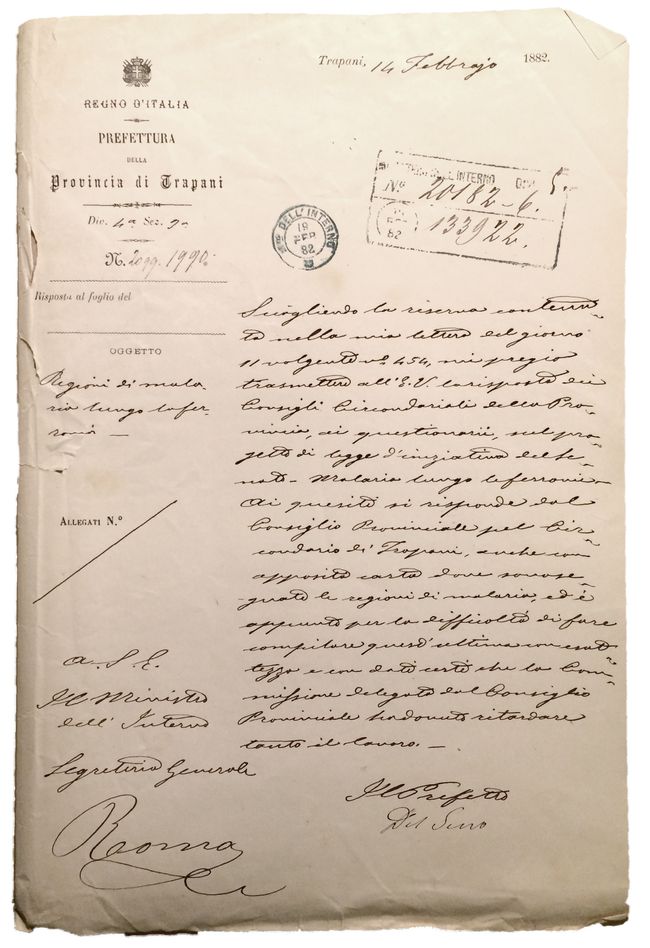 Trapani, 14 Febbrajo 1882.
REGNO D'ITALIA
PREFETTURA
DELLA
Provincia di Trapani
Div. 4ª Sez. 2ª
N. 1990
Risposta al foglio del
OGGETTO
Regioni di mala-
ria lungo le fer-
rovie —
ALLEGATI N.º
A. S. E.
Il Ministro
dell'Interno
Segreteria Generale
Roma
Mº DELL'INTERNO
19
FEB
82
INTERNO 5.
Nº 20182-6.
FEB
82
133922.
Sciogliendo la riserva contenu-
ta nella mia lettera del giorno
11 volgente nº 454, mi pregio
trasmettere all'E.V. la risposta dei
Consigli Circondariali della Pro-
vincia, ai questionarii, sul pro-
getto di legge d'iniziativa del Se-
nato - Malaria lungo le ferrovie -
Ai quesiti si risponde dal
Consiglio Provinciale pel Cir-
condario di Trapani, anche con
apposita carta dove sono se-
gnate le regioni di malaria, ed è
appunto per la difficoltà di fare
compilare quest'ultima con esat-
tezza e con dati certi che la Com-
missione delegata dal Consiglio
Provinciale ha dovuto ritardare
tanto il lavoro. —
Il Prefetto